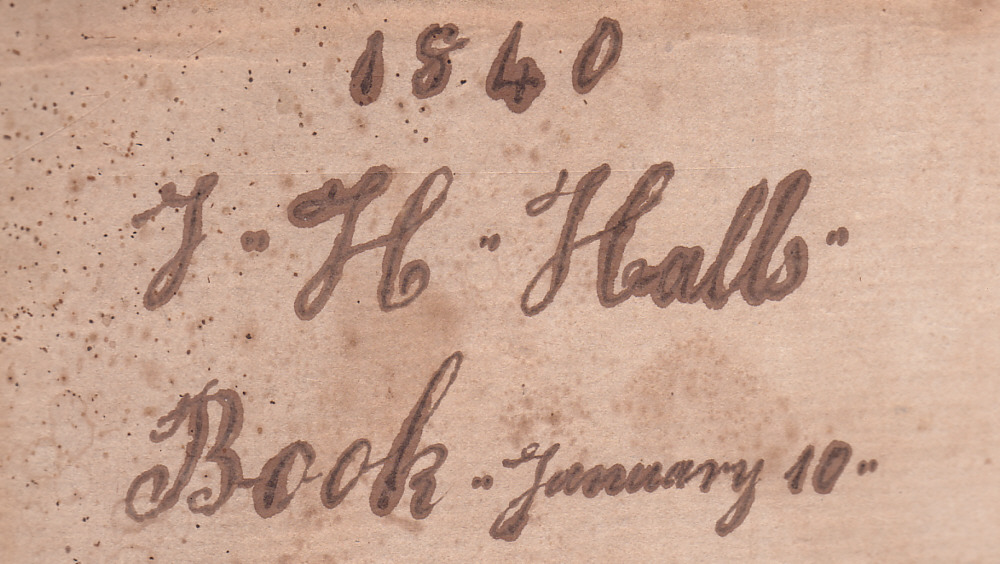 1840
J " H " Hall "
Book " January 10 "